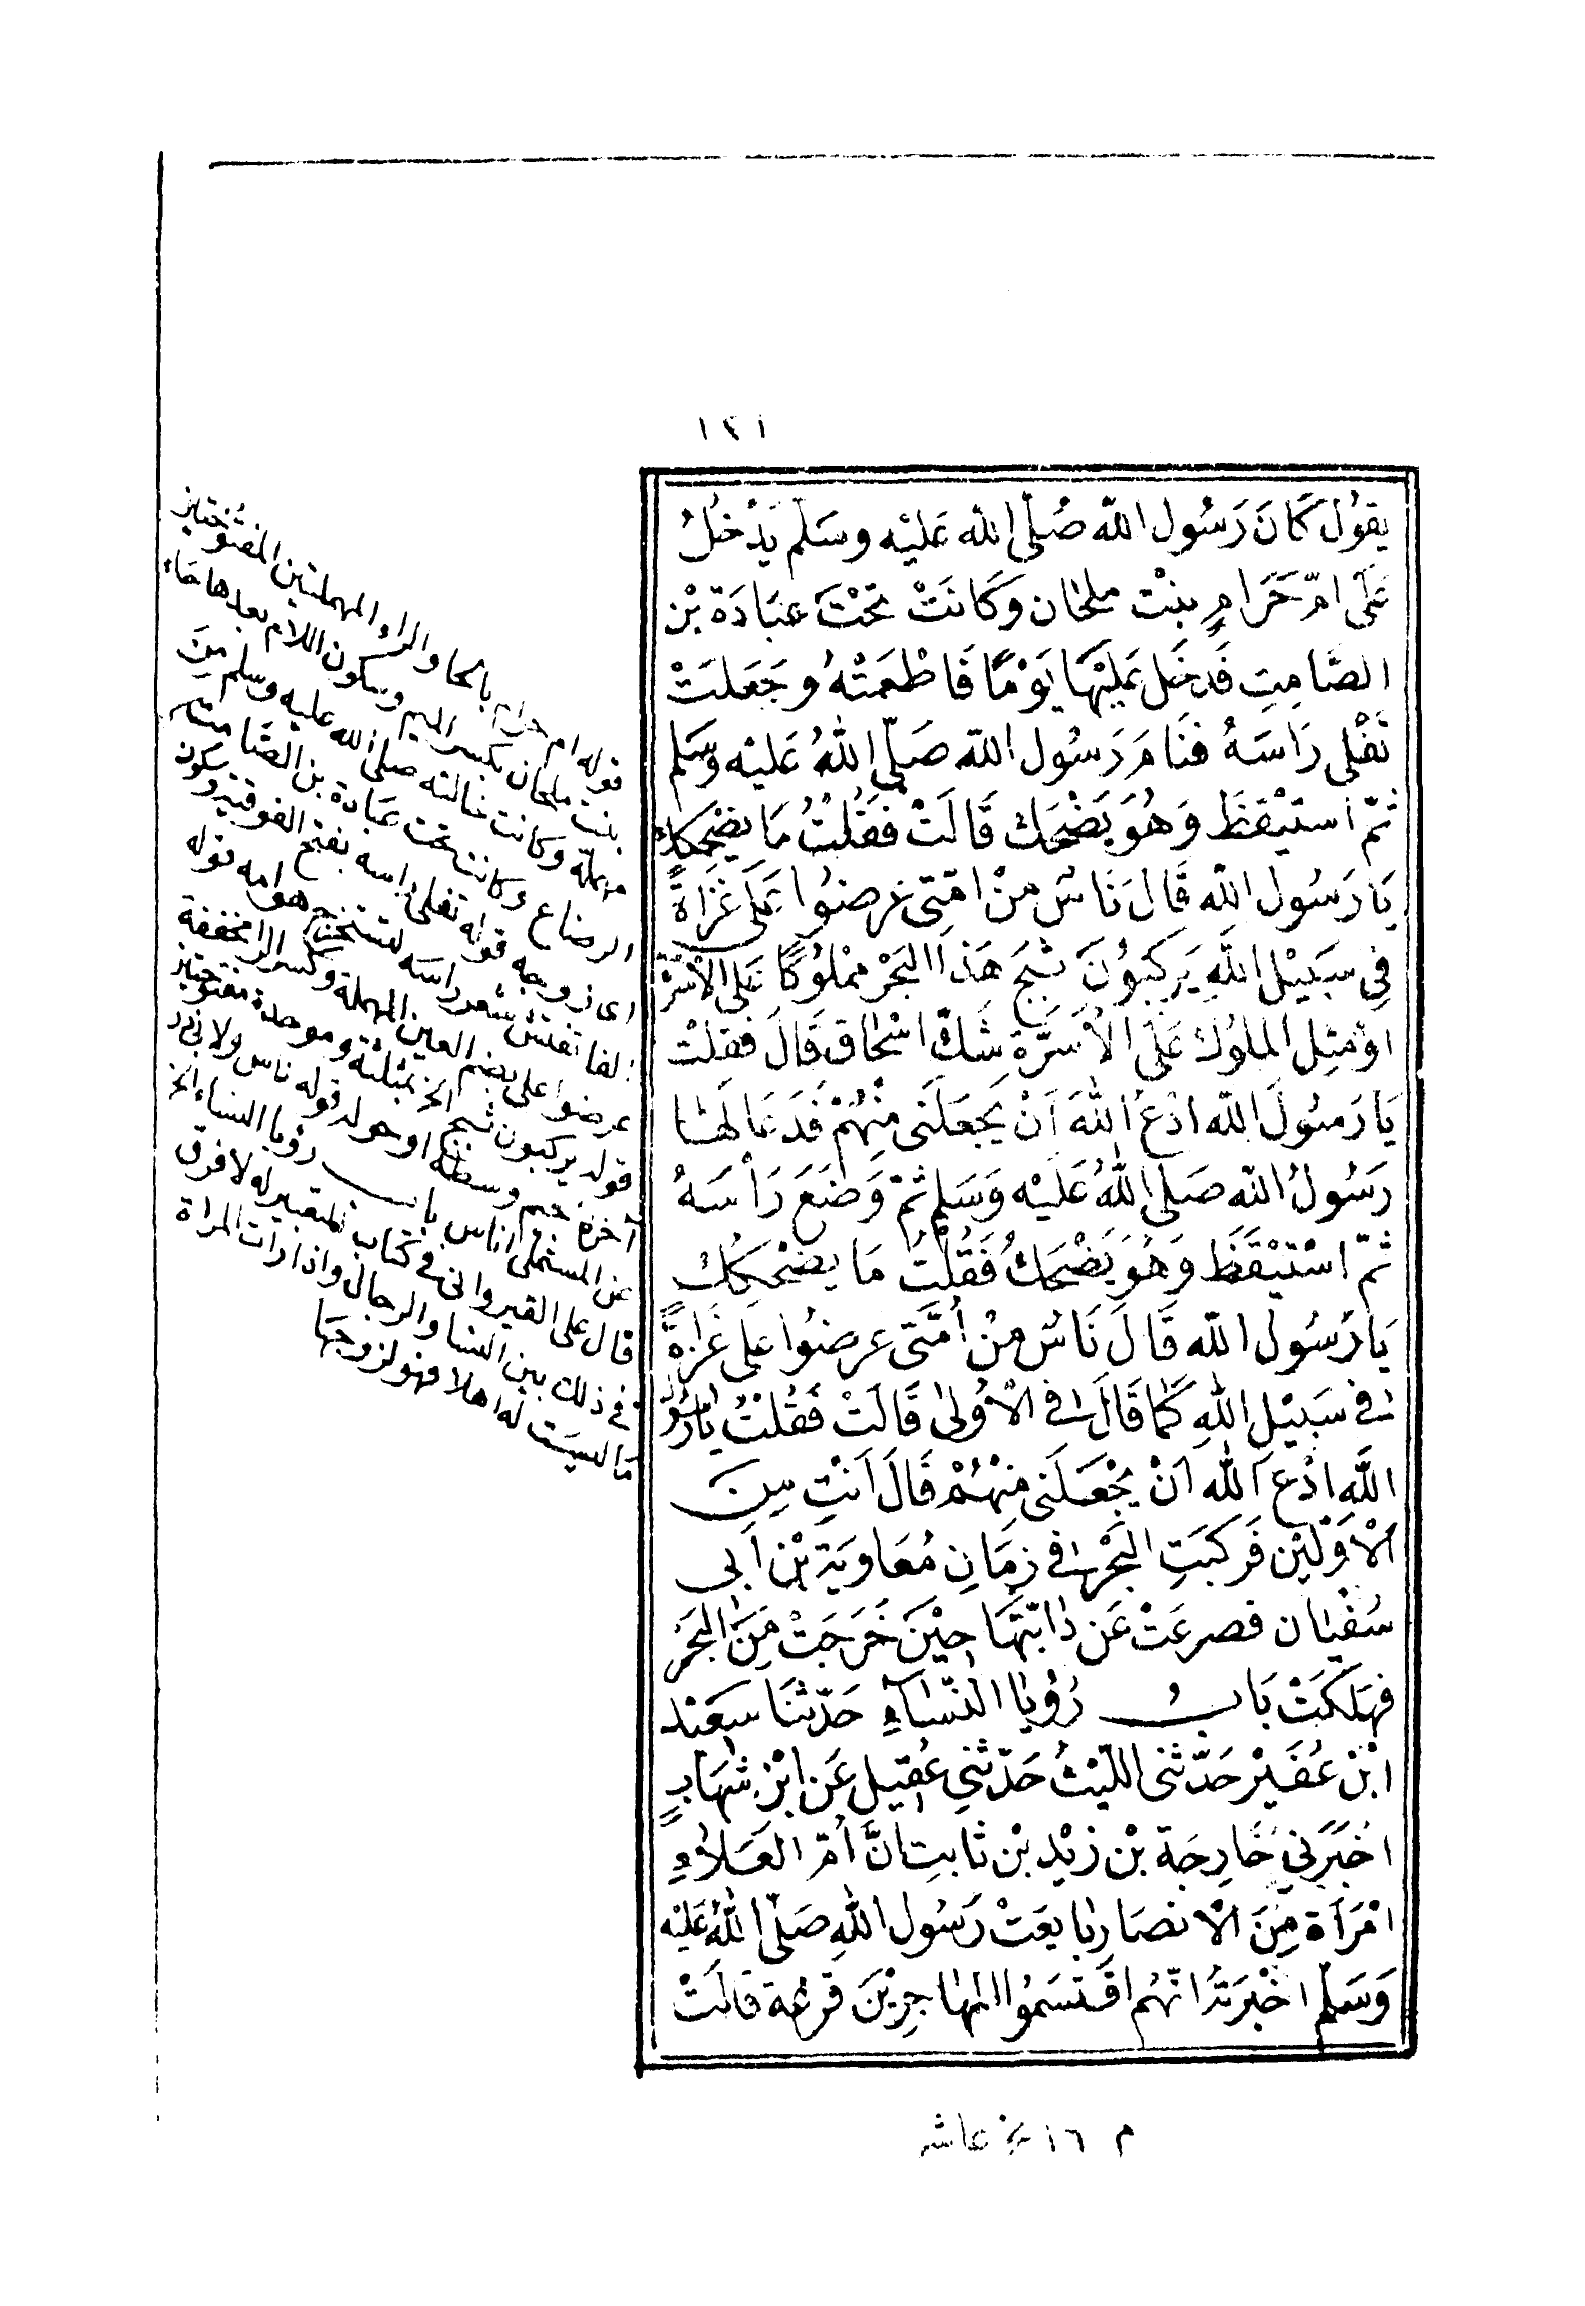 ١٢١
يقُولُ كَانَ رَسُول اللّه صُلّى الله عَليْه وسَلّم يَدْخُلُ
عَلَى امّ حَرَامٍ بنْت ملحان وكَانَتْ تحْتَ عبَادَة بْن
الصَّامِتِ فَدخَل عَليْهَا يَوْمًا فَاطْعَمَتْهُ وجَعَلَتْ
تَفْلى رَاسَهُ فنَامَ رَسُول اللّه صَلّى اللهُ عَليْه وَسَلم
ثمّ استَيْقظَ وَهُوَ يَضْحَك قَالَتْ فَقُلْتُ مَا يضْحِكك
يَا رَسُول اللّه قَالَ نَاسٌ منْ امّتى عرضوُا عَلَى غَزَاةً
فِى سبَيْل اللهِ يَركبوُنَ ثبجَ هَذا البَحْر مملوُكًا عَلى الاسْرّة
اوْ مثِل الملوُك عَلَى الاُسَرَّة شَكّ اسْحَاق قَالَ فَقلْت
يَا رَسُولَ اللّه ادْعُ اللهَ اَنْ يَجعَلَنى مِنْهُمْ فَدَعَا لَهَا
رَسُولُ اللّه صَلى اللهُ عَليْه وَسَلم ثمّ وَضَعَ رَاْسَهُ
ثمّ اسْتَيْقَظَ وَهُوَ يَضْحَكُ فَقُلْتُ مَا يضْحكُك
يَا رَسُول اللّه قَالَ نَاسٌ منْ اُمَّتى عرضوُا عَلى غَزاةً
فى سَبيْلِ اللهِ كَما قَالَ فى الْاُولىٰ قَالَتْ فَقُلْتُ يَا رَسُولَ
اللَّهِ ادْع اللّه اَنْ يجْعَلَنى مِنْهُمْ قَالَ اَنْتِ مِنَ
الْاَوّليْن فَركبَتِ البَحْر فى زمَانِ مُعَاويَة بْن اَبى
سُفْيَان فصرعَتْ عَن دَابّتهَا حِيْنَ خَرَجَتْ مِنَ البَحْر
فهَلَكَتْ بَابُ رُؤيَا النّسَاءِ حَدّثنَا سَعيْد
ابْن عُفَيْر حَدّثنى اللّيْثُ حَدّثنِى عُقيْل عَن ابْن شهَابٍ
اخْبَرَنِى خَارِجَة بْن زيْد بْن ثابتِ انَّ اُمّ العَلاَءِ
امْرَاَة مِنَ الْانصَارِ بَايعَتْ رَسُول اللهِ صَلّى اللهُ عَليْه
وَسَلّم اخْبرَتهُ انّهُم اقتسَموُا المهَاجِرِيْنَ قرعَة قالَتْ
قوله ام حرام بالحا والراء المهملتين المفتوُحتين
بنت ملحان بكسر الميم وسكون اللام بعدها حَاء
مهملة وكانت خالته صلى الله عليه وسلم منَ
الرضاع وكانت تحت عبَادة بن الصَّامت
اى زوجه قوله تفلى راسه بفتح الفوقية وسكون
الفا تفتش شعر راسَه لتستخرج هوامه قوله
عرضوا على بضم العين المهملة وكسر الرا مخففة
قوله يركبون ثبج الخ بمثلثة وموحدة مفتوحتين
آخره جيم وسطه او هوله قوله ناس ولابى ذر
عن المستملى اناس باب رؤيا النساء الخ
قال على القيروانى فى كتاب التعبير له لا فرق
فى ذلك بين النسا والرجال واذا رات المراة
مَا ليسَت له اهلا فهو لزوجهَا
م ١٦ عاشر